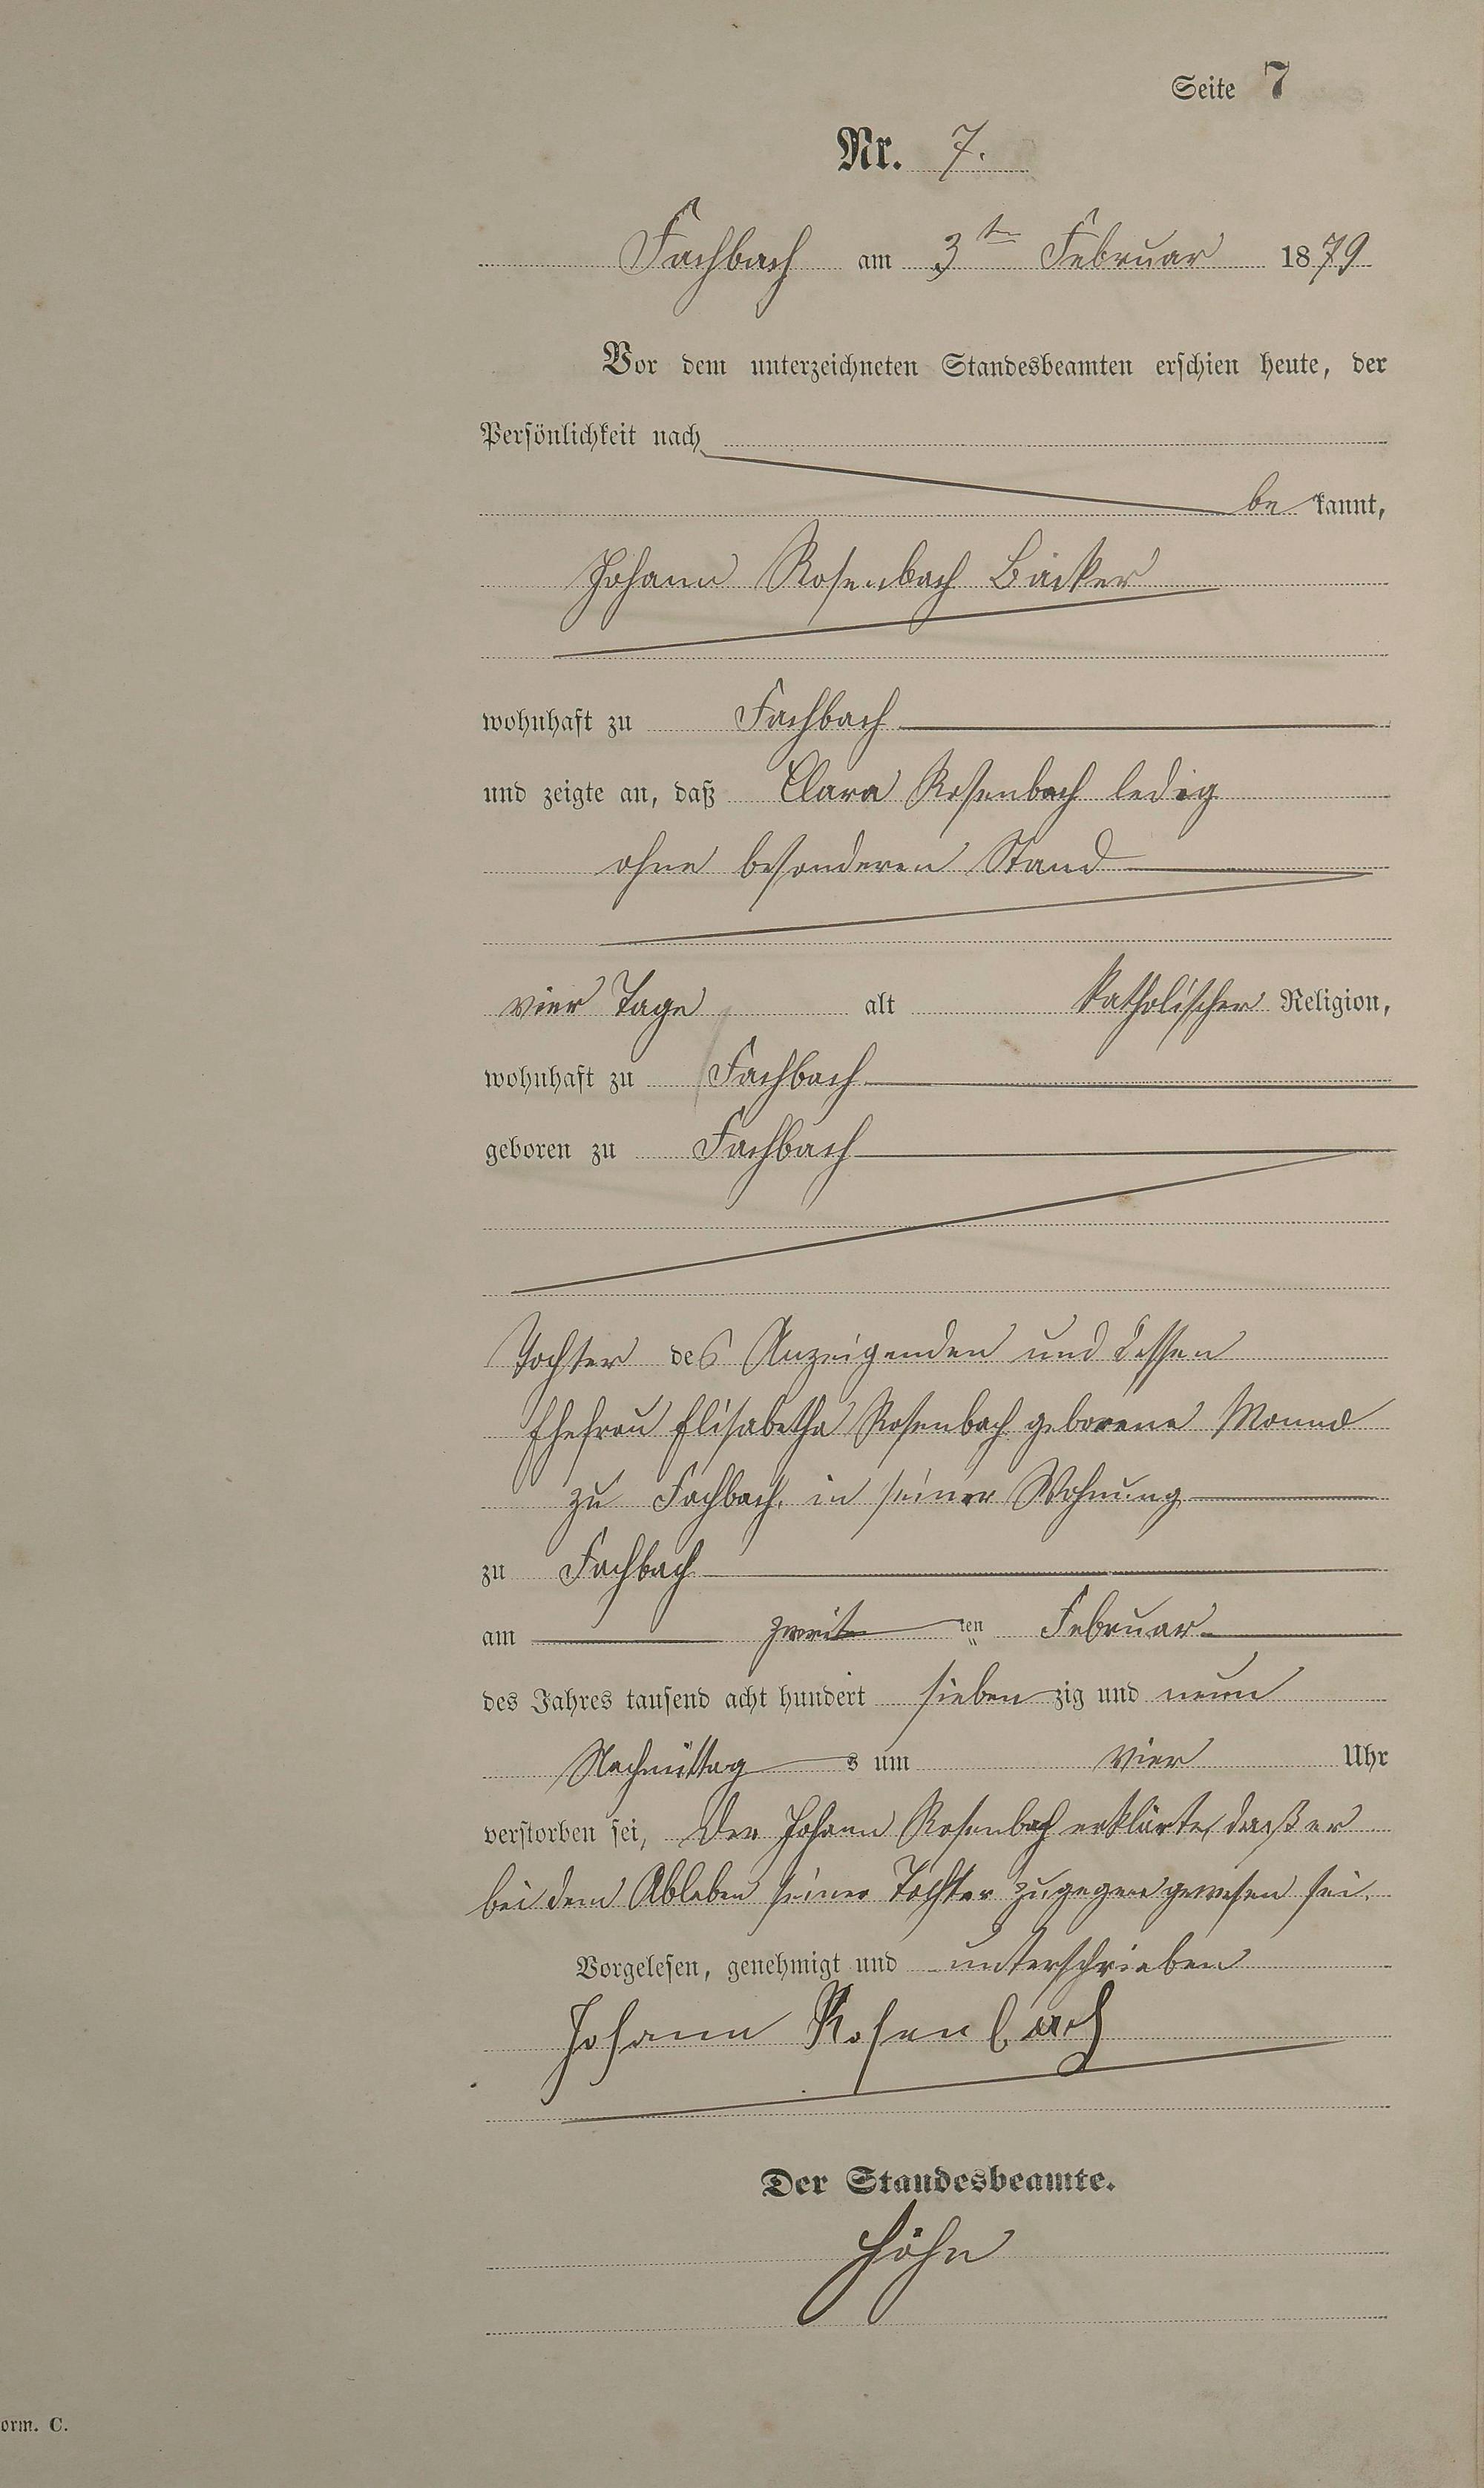 Seite 7
Nr. 7.
Fachbach am 3ten Februar 1879
Vor dem unterzeichneten Standesbeamten erschien heute, der
Persönlichkeit nach
be kannt,
Johann Rosenbach Bäcker
wohnhaft zu Fachbach
und zeigte an, daß Clara Rosenbach ledig
ohne besonderen Stand
vier Tage alt katholischer Religion,
wohnhaft zu Fachbach
geboren zu Fachbach
Tochter des Anzeigenden und dessen
Ehefrau Elisabetha Rosenbach geborene
zu Fachbach, in seiner Wohnung
zu Fachbach
am zweiten Februar
des Jahres tausend acht hundert sieben zig und neun
Nachmittag s um vier Uhr
verstorben sei, Der Johann Rosenbach erklärte, daß er
bei dem Ableben seiner Tochter zugegen gewesen sei.
Vorgelesen, genehmigt und unterschrieben
Johann Rosenbach
Der Standesbeamte.
Höhn
orm. C.